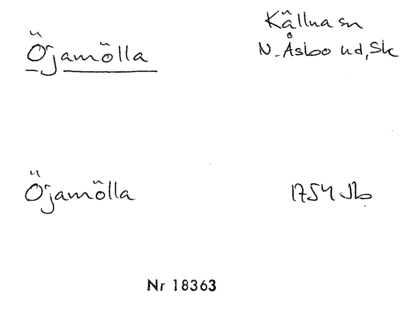 Öjamölla
Källna sn
N. Åsbo hd, Sk
Öjamölla
1754 Jb
Nr 18363